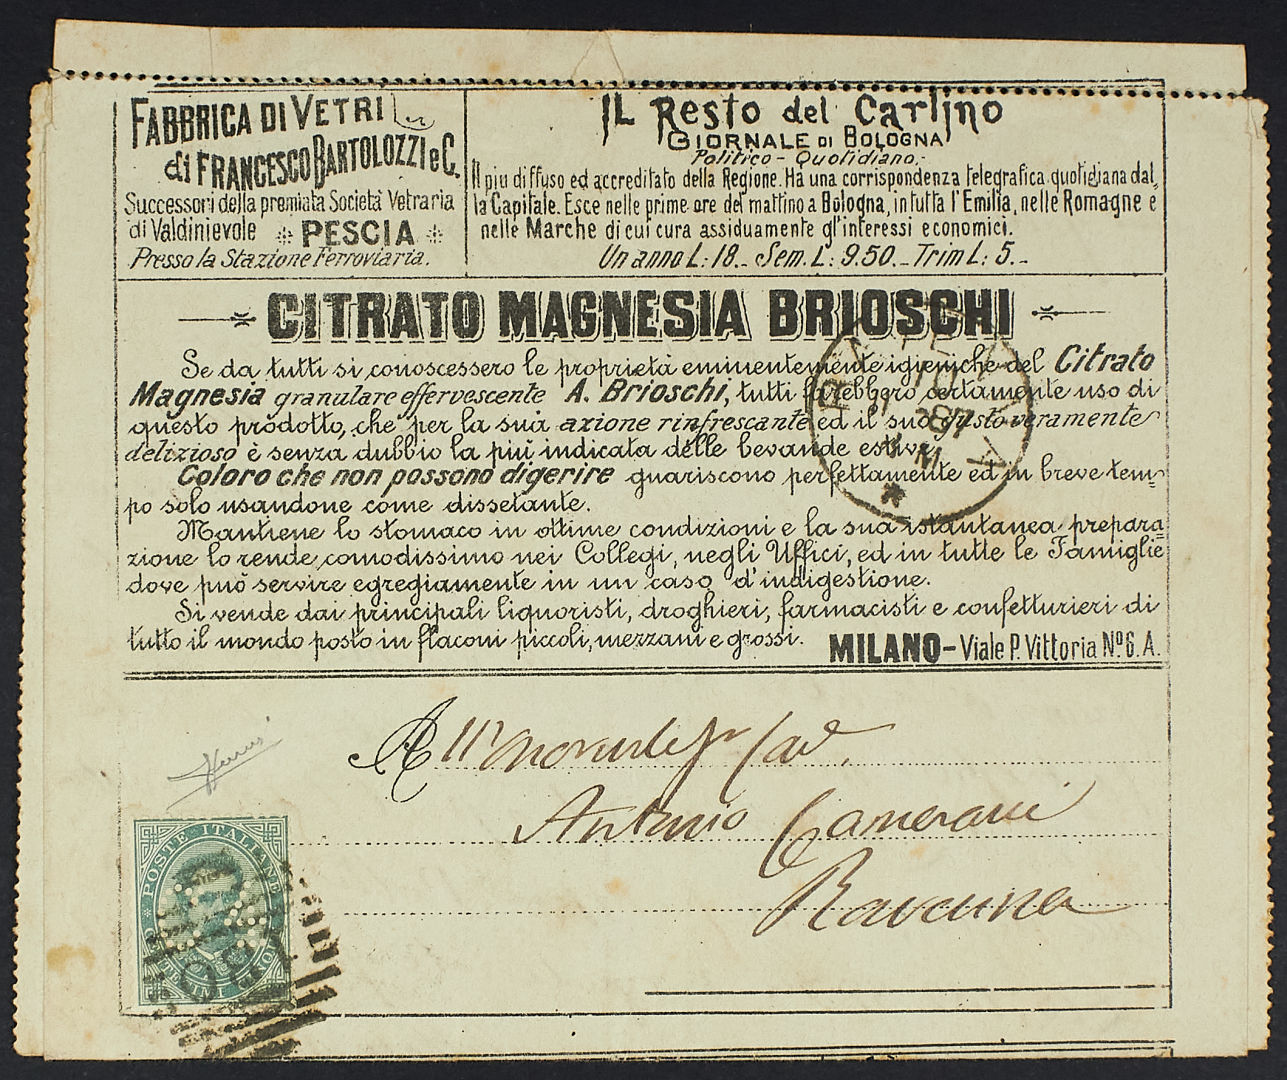 FABBRICA DI VETRI
di FRANCESCO BARTOLOZZI e C.
Successori della premiata Società Vetraria
di Valdinievole PESCIA
Presso la Stazione Ferroviaria.
IL Resto del Carlino
GIORNALE DI BOLOGNA
Politico - Quotidiano.-
Il piu diffuso ed accreditato della Regione. Ha una corrispondenza telegrafica quotidiana dal-
la Capitale. Esce nelle prime ore del mattino a Bologna, in tutta l'Emilia, nelle Romagne e
nelle Marche di cui cura assiduamente gl'interessi economici.
Un anno L: 18.- Sem. L: 9.50.- Trim L: 5.-
CITRATO MAGNESIA BRIOSCHI
Se da tutti si conoscessero le proprietà eminentemente igieniche del Citrato
Magnesia granulare effervescente A. Brioschi, tutti farebbero certamente uso di
questo prodotto, che per la sua azione rinfrescante ed il suo gusto veramente
delizioso è senza dubbio la più indicata delle bevande estive.
Coloro che non possono digerire guariscono perfettamente ed in breve tem-
po solo usandone come dissetante.
Mantiene lo stomaco in ottime condizioni e la sua istantanea prepara-
zione lo rende comodissimo nei Collegi, negli Uffici, ed in tutte le Famiglie
dove può servire egregiamente in un caso d'indigestione.
Si vende dai principali liquoristi, droghieri, farmacisti e confetturieri di
tutto il mondo posto in flaconi piccoli, mezzani e grossi.
MILANO - Viale P. Vittoria No 6. A.
10
87
All'
Antonio Camerani
Ravenna
POSTE ITALIANE